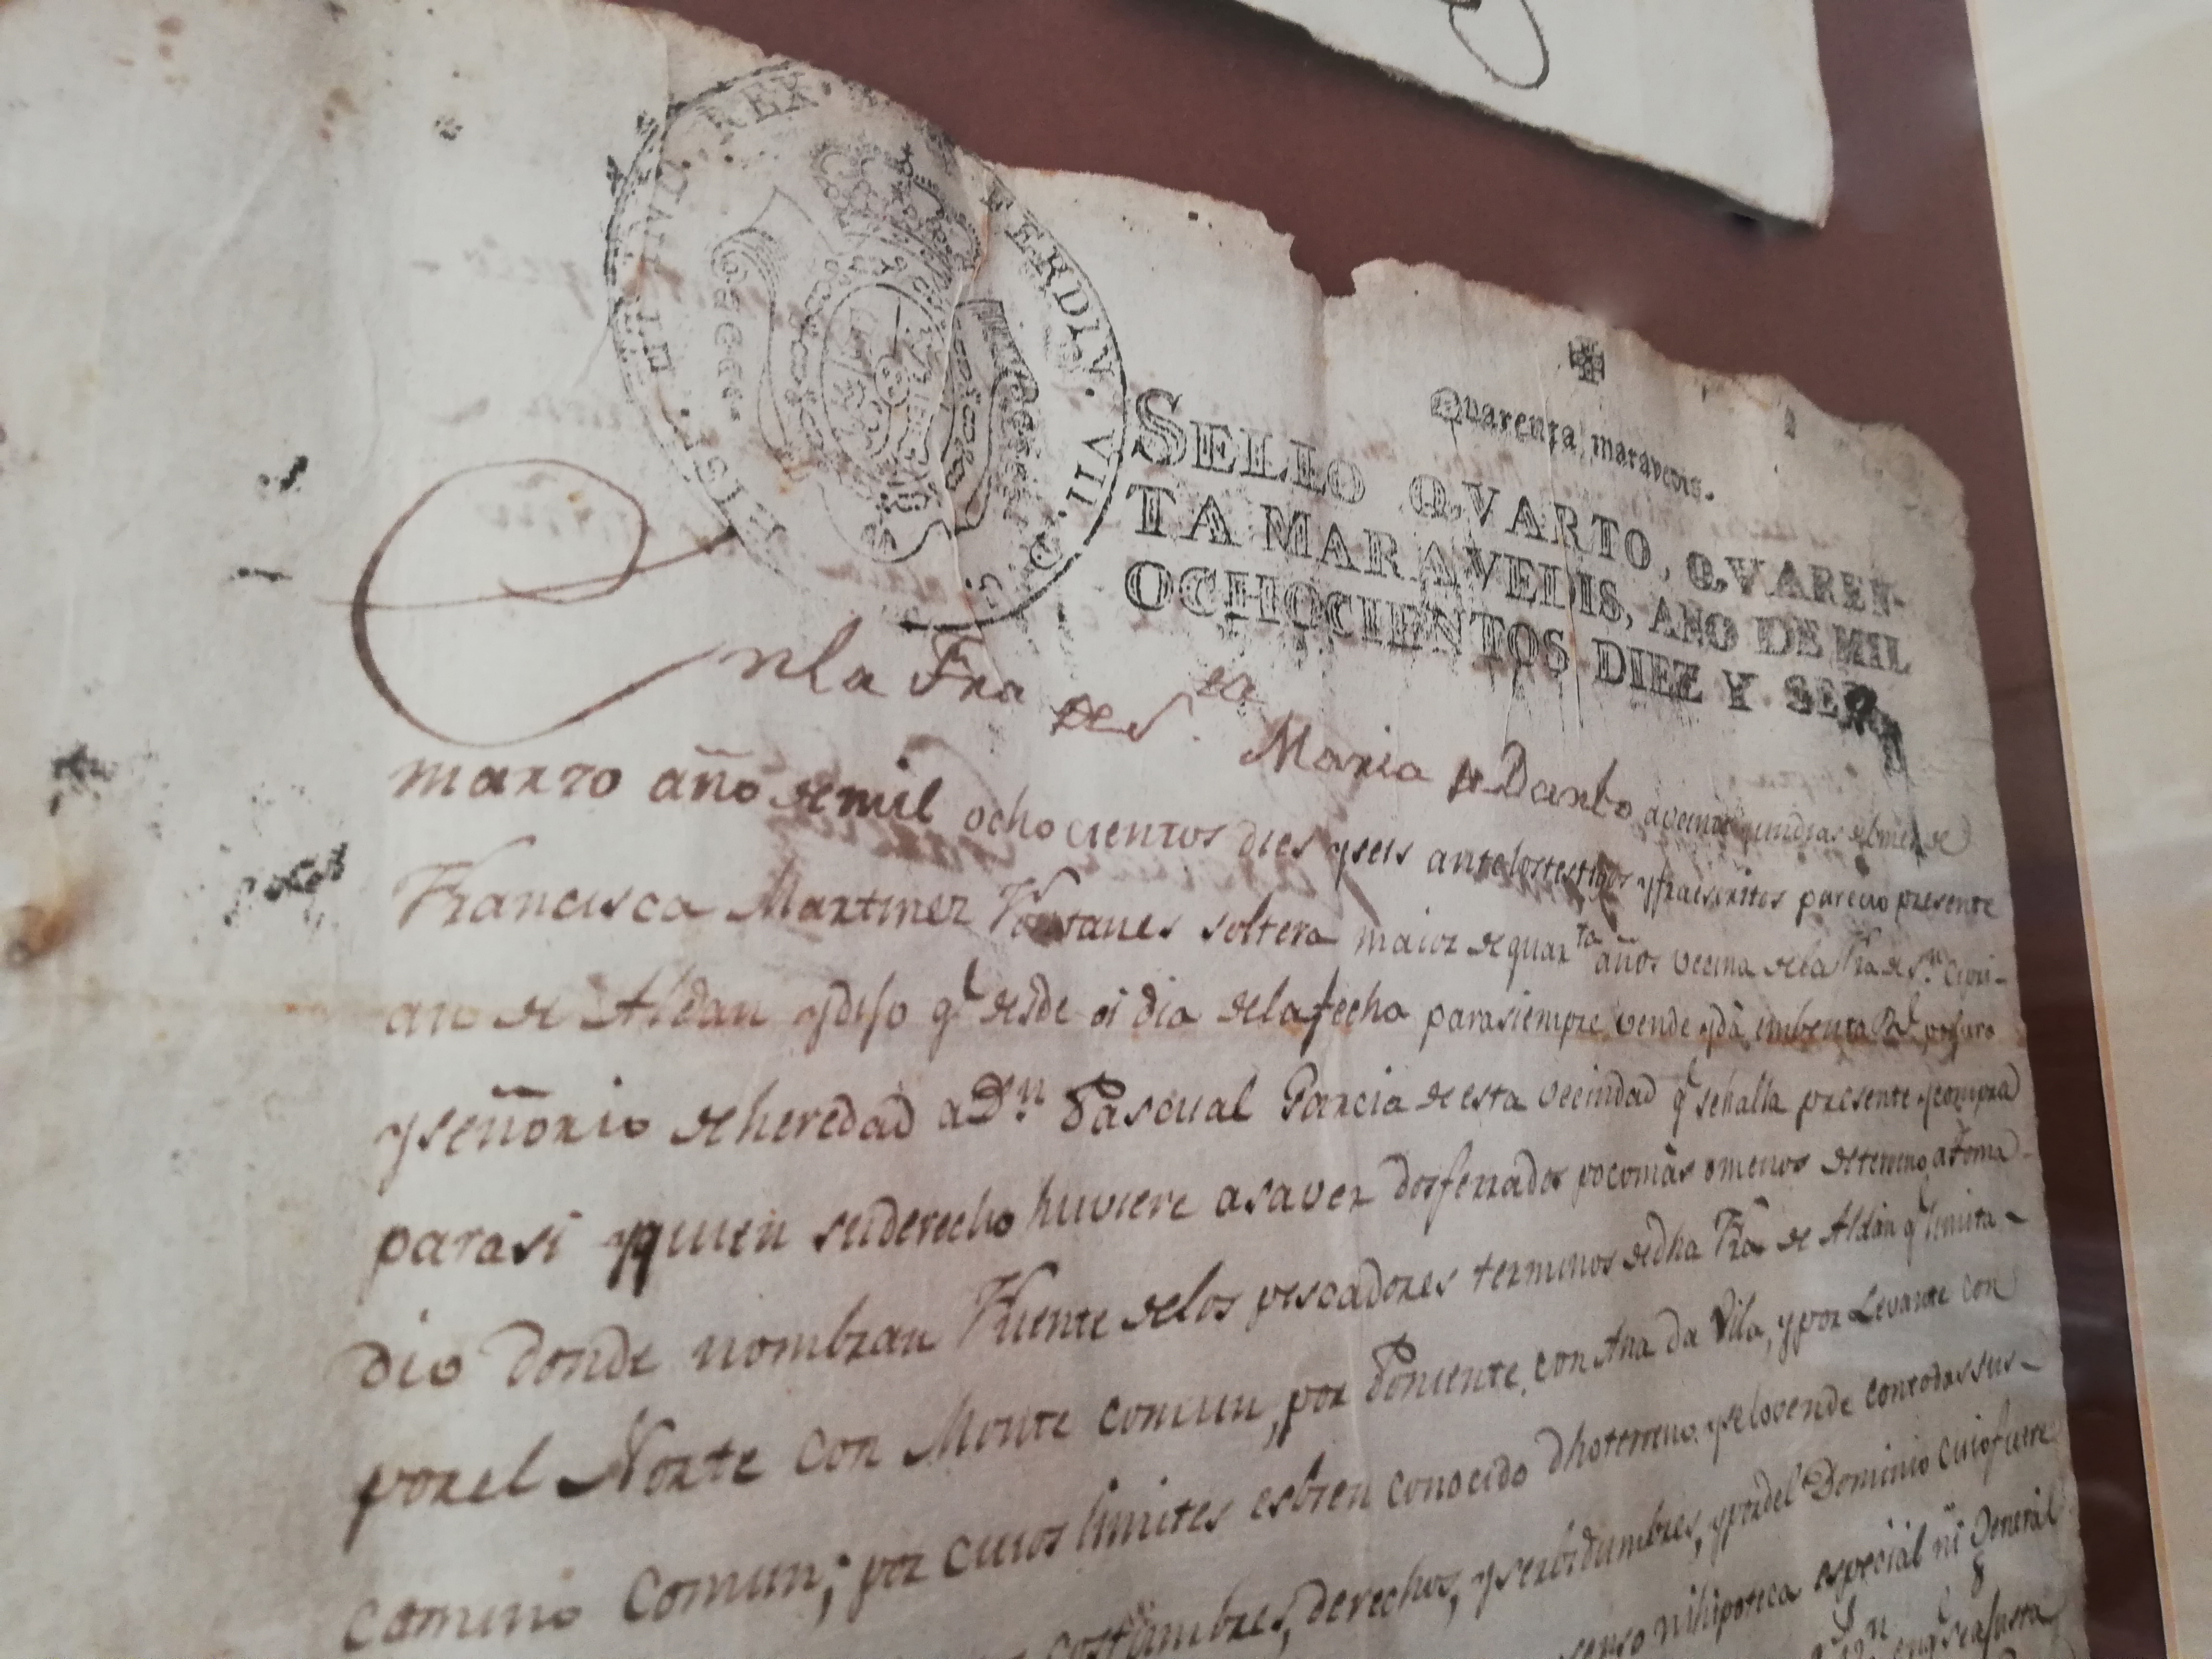 FERDIN. VII. D. G. HISP. ET IND. REX.
Quarenta maravedis.
SELLO QVARTO, QVAREN-
TA MARAVEDIS, AÑO DE MIL
OCHOCIENTOS DIEZ Y SEIS
En la Fra de S.ta Maria de Darbo a veinte y un dias del mes de
marzo año de mil ocho cientos dies y seis ante los testigos y parecio presente
Francisca Martinez soltera maior de quar.ta años vecina de la Fra de S.n Cipri-
ano de Aldan y dijo q.e desde oi dia de la fecha para siempre vende y dà en benta R.l
y señorio de heredad a D.n Pascual Garcia de esta vecindad q.e se halla presente y compra
para si y quien su derecho huviere a saver dos ferrados poco màs o menos de terreno a toma-
dio donde nombran Fuente de los pescadores terminos de dha Fra de Aldàn q.e limita-
por el Norte con Monte comun, por Poniente con Ana da Vila, y por Levante con
camino Comun; por cuios limites es bien conocido dho terreno y se lo vende con todas sus-
costumbres, derechos, y serbidumbres, y por del Dominio cuio fuere
senso ni hipoteca especial ni General